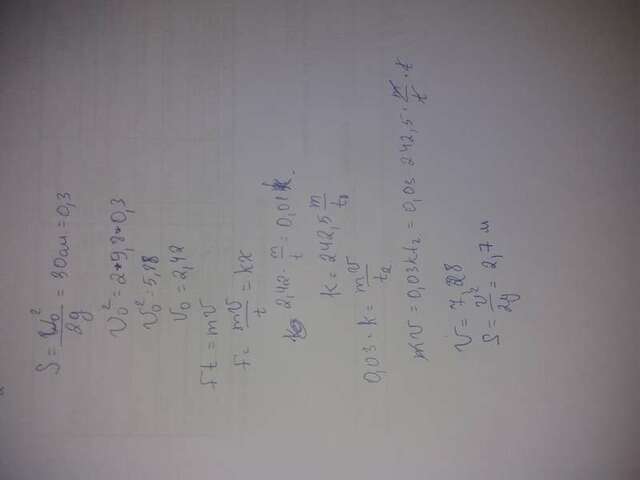 S = v₀²/2g = 30 см = 0,3
v₀² = 2*9,8*0,3
v₀² = 5,88
v₀ = 2,42
Ft = mv
F = mv/t = kx
2,42 · m/t = 0,01 k.
k = 242,5 m/t₀
0,03 · k = mv/t₂
mv = 0,03kt₂ = 0,03 242,5 · m/t · t
v = 7,28
S = v²/2g = 2,7 м